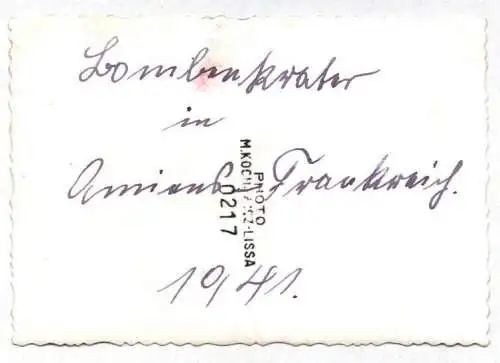 Bombenkrater
in
Amiens Frankreich.
1941.
PHOTO
M.KOCH, -LISSA
0217